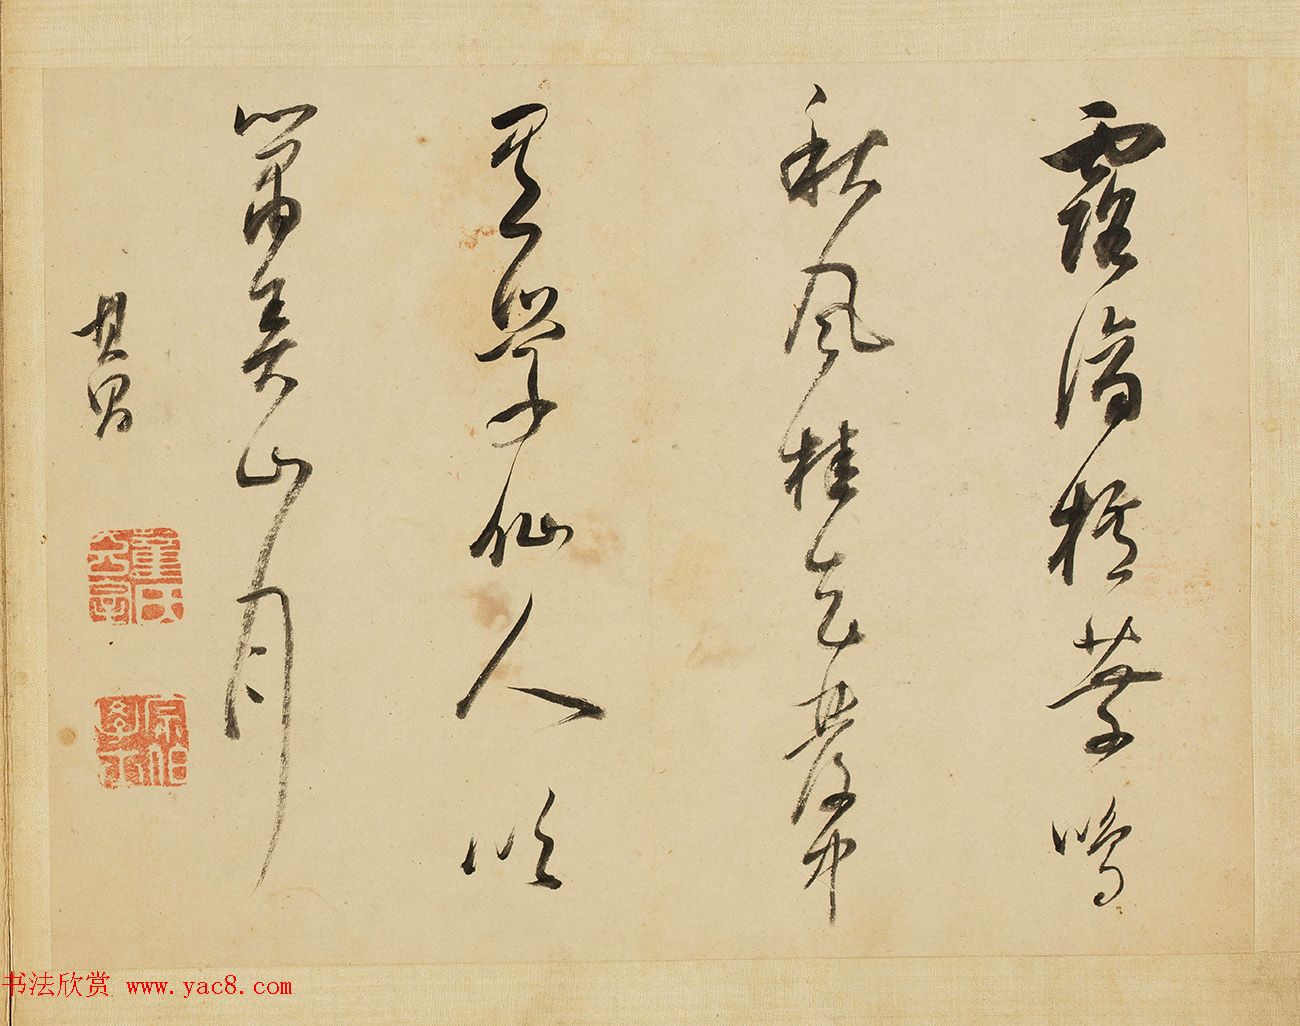 露滴梧葉鳴
秋風桂花發中
有學仙人吹
簫弄山月
其昌
董氏玄宰
宗伯學士
书法欣赏 www.yac8.com